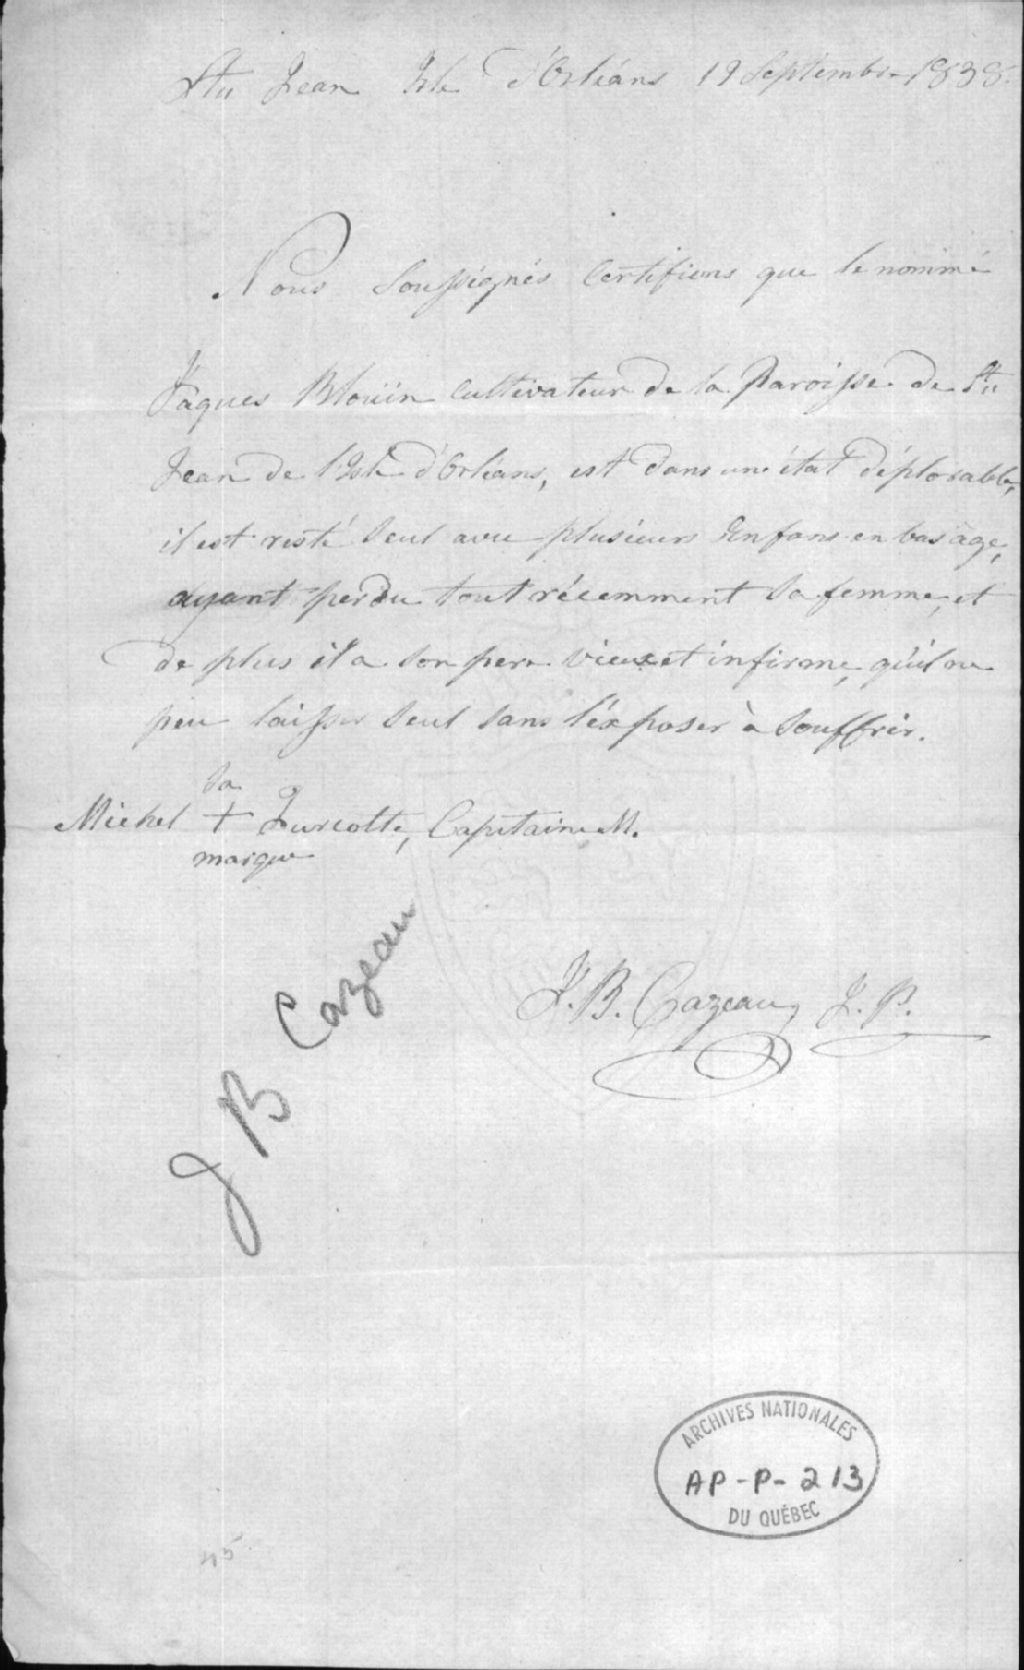 Stn Jean Isle d'Orléans 19 Septembre 1838.
Nous Soussignés Certifions que le nommé
Jaques Blouin Cultivateur de la Paroisse de Stn
Jean de l'Isle d'Orléans, est dans un état déplorable,
il est resté Seul avec plusieurs Enfans en bas âge,
ayant perdu tout récemment Sa femme, et
de plus il a Son pere vieux et infirme, qu'il ne
peu laisser Seul Sans l'éxposer à Souffrir.
Sa
Michel + Turcotte, Capitaine M.
marque
J B Cazeau
J. B. Cazeau, J. P.
ARCHIVES NATIONALES
AP-P-213
DU QUÉBEC
45